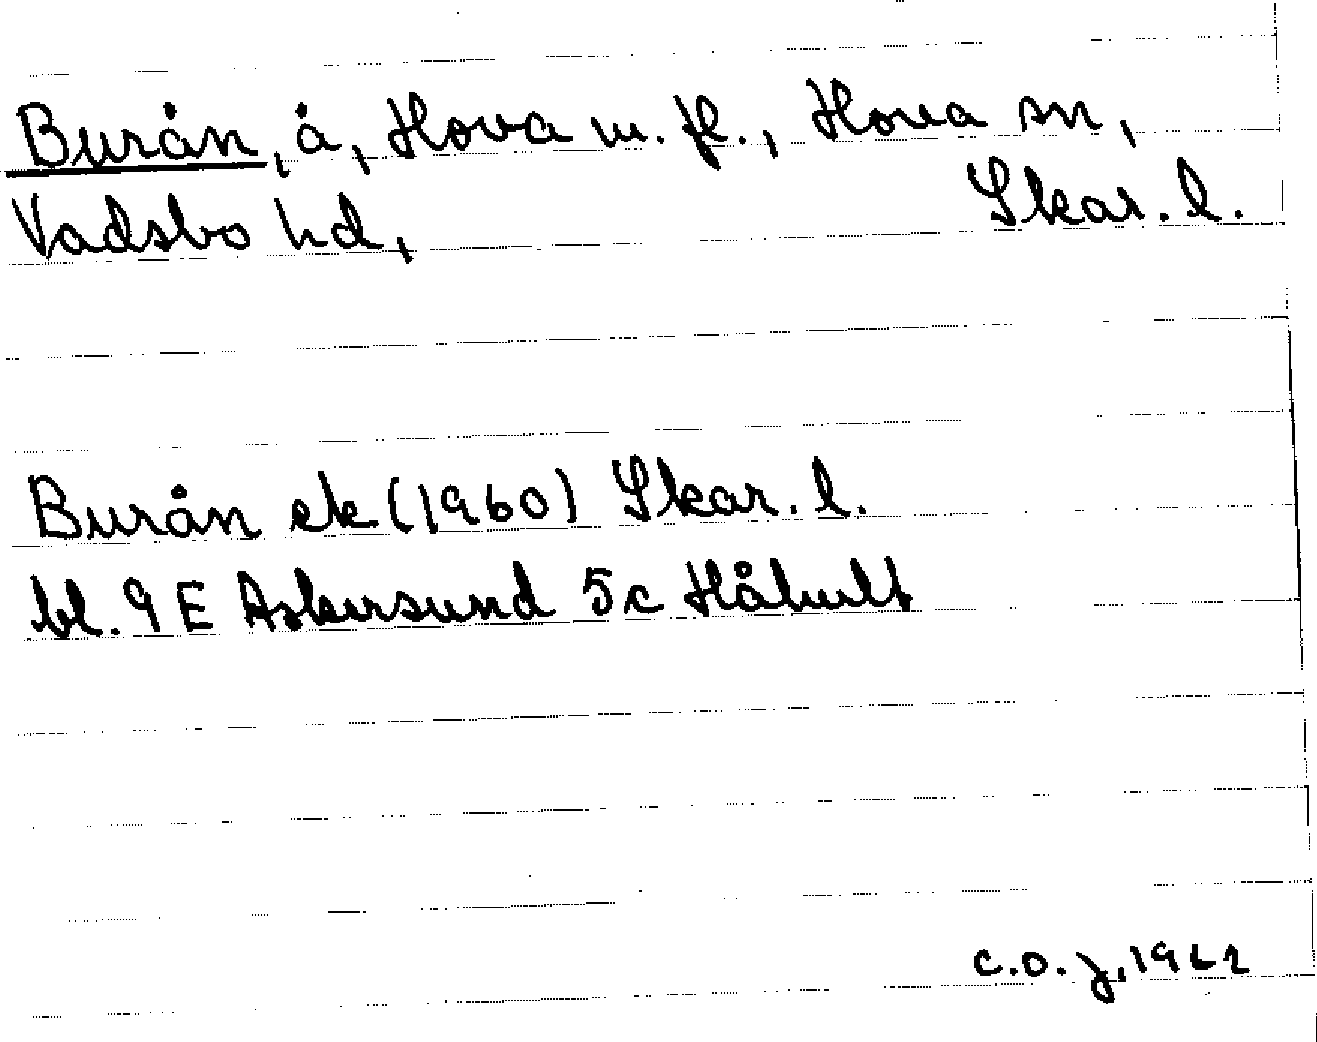 Burån, å, Hova m. fl., Hova sn,
Vadsbo hd, Skar. l.
Burån ek (1960) Skar. l.
bl. 9 E Askersund 5c Håhult
C.O.J. 1962